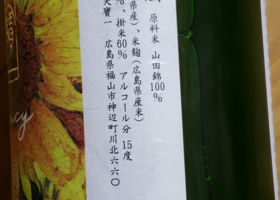 原料米 山田錦100%
県産)、米麹(広島県産米)
%、掛米60% アルコール分 15度
天寶一 広島県福山市神辺町川北六六〇